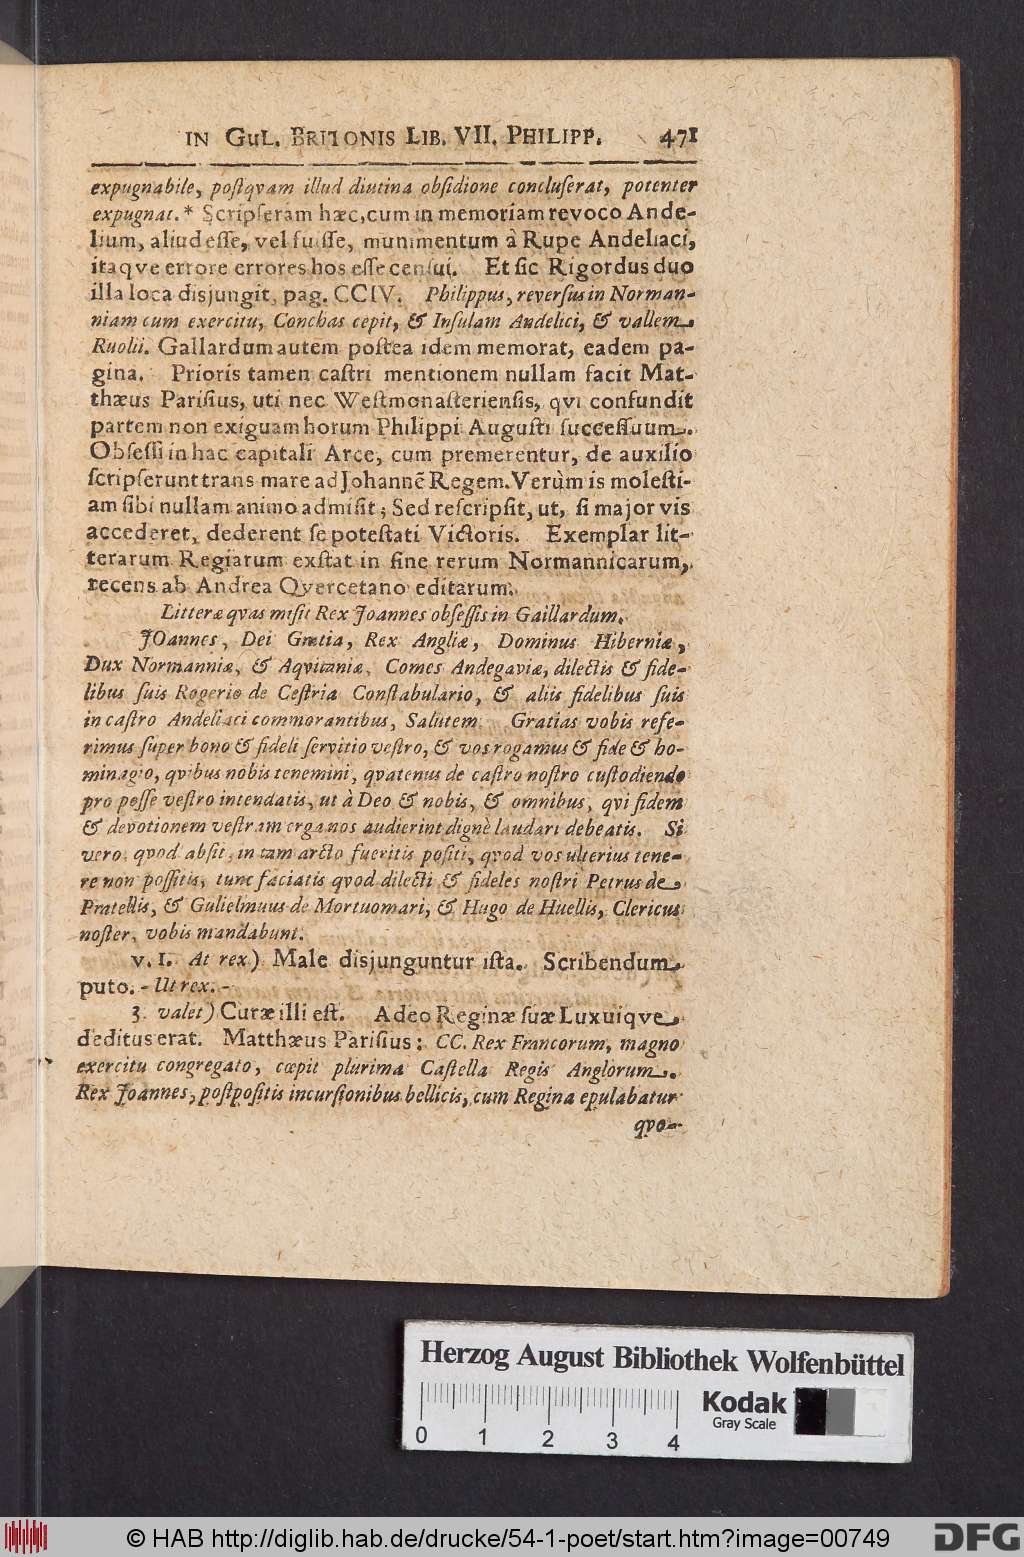 IN GUL. BRITONIS LIB. VII. PHILIPP. 471
expugnabile, postqvam illud diutina obsidione concluserat, potenter
expugnat. * Scripseram hæc, cum in memoriam revoco Ande-
lium, aliud esse, vel fuisse, munimentum à Rupe Andeliaci,
itaqve errore errores hos esse censui. Et sic Rigordus duo
illa loca disjungit, pag. CCIV. Philippus, reversus in Norman-
niam cum exercitu, Conchas cepit, & Insulam Andelici, & vallem
Ruolii. Gallardum autem postea idem memorat, eadem pa-
gina. Prioris tamen castri mentionem nullam facit Mat-
thæus Parisius, uti nec Westmonasteriensis, qvi confundit
partem non exiguam horum Philippi Augusti successuum.
Obsessi in hac capitali Arce, cum premerentur, de auxilio
scripserunt trans mare ad Johannē Regem. Verùm is molesti-
am sibi nullam animo admisit; Sed rescripsit, ut, si major vis
accederet, dederent se potestati Victoris. Exemplar lit-
terarum Regiarum exstat in fine rerum Normannicarum,
recens ab Andrea Qvercetano editarum.
Litteræ qvas misit Rex Joannes obsessis in Gaillardum.
JOannes, Dei Gratia, Rex Angliæ, Dominus Hiberniæ,
Dux Normanniæ, & Aqvitaniæ, Comes Andegaviæ, dilectis & fide-
libus suis Rogerio de Cestria Constabulario, & aliis fidelibus suis
in castro Andeliaci commorantibus, Salutem. Gratias vobis refe-
rimus super bono & fideli servitio vestro, & vos rogamus & fide & ho-
minagio, qvibus nobis tenemini, qvatenus de castro nostro custodiendo
pro posse vestro intendatis, ut à Deo & nobis, & omnibus, qvi fidem
& devotionem vestram erga nos audierint dignè laudari debeatis. Si
vero, qvod absit, in tam arcto fueritis positi, qvod vos ulterius tene-
re non possitis, tunc faciatis qvod dilecti & fideles nostri Petrus de
Pratellis, & Gulielmuus de Mortuomari, & Hugo de Huellis, Clericus
noster, vobis mandabunt.
v. 1. At rex) Male disjunguntur ista. Scribendum
puto. - Ut rex. -
3. valet) Curæ illi est. Adeo Reginæ suæ Luxuiqve
deditus erat. Matthæus Parisius: CC. Rex Francorum, magno
exercitu congregato, cœpit plurima Castella Regis Anglorum.
Rex Joannes, postpositis incursionibus bellicis, cum Regina epulabatur
qvo-
Herzog August Bibliothek Wolfenbüttel
0 1 2 3 4
Kodak
Gray Scale
© HAB http://diglib.hab.de/drucke/54-1-poet/start.htm?image=00749
DFG